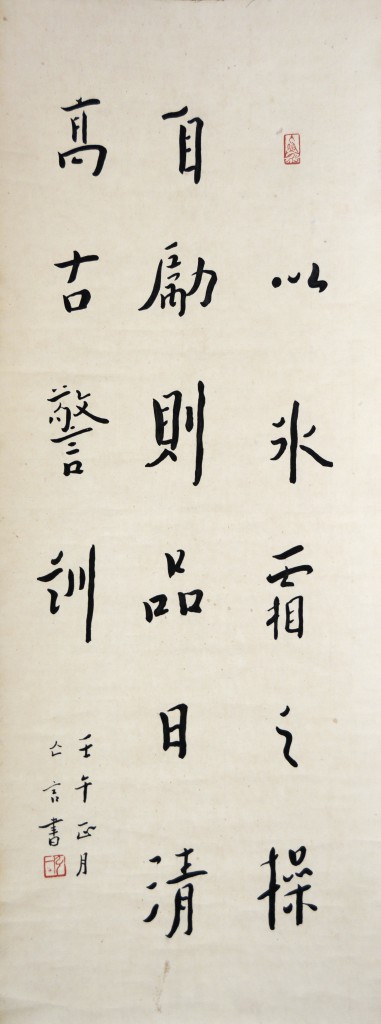 以冰霜之操
自勵則品日清
高古警訓
壬午正月
亾言書